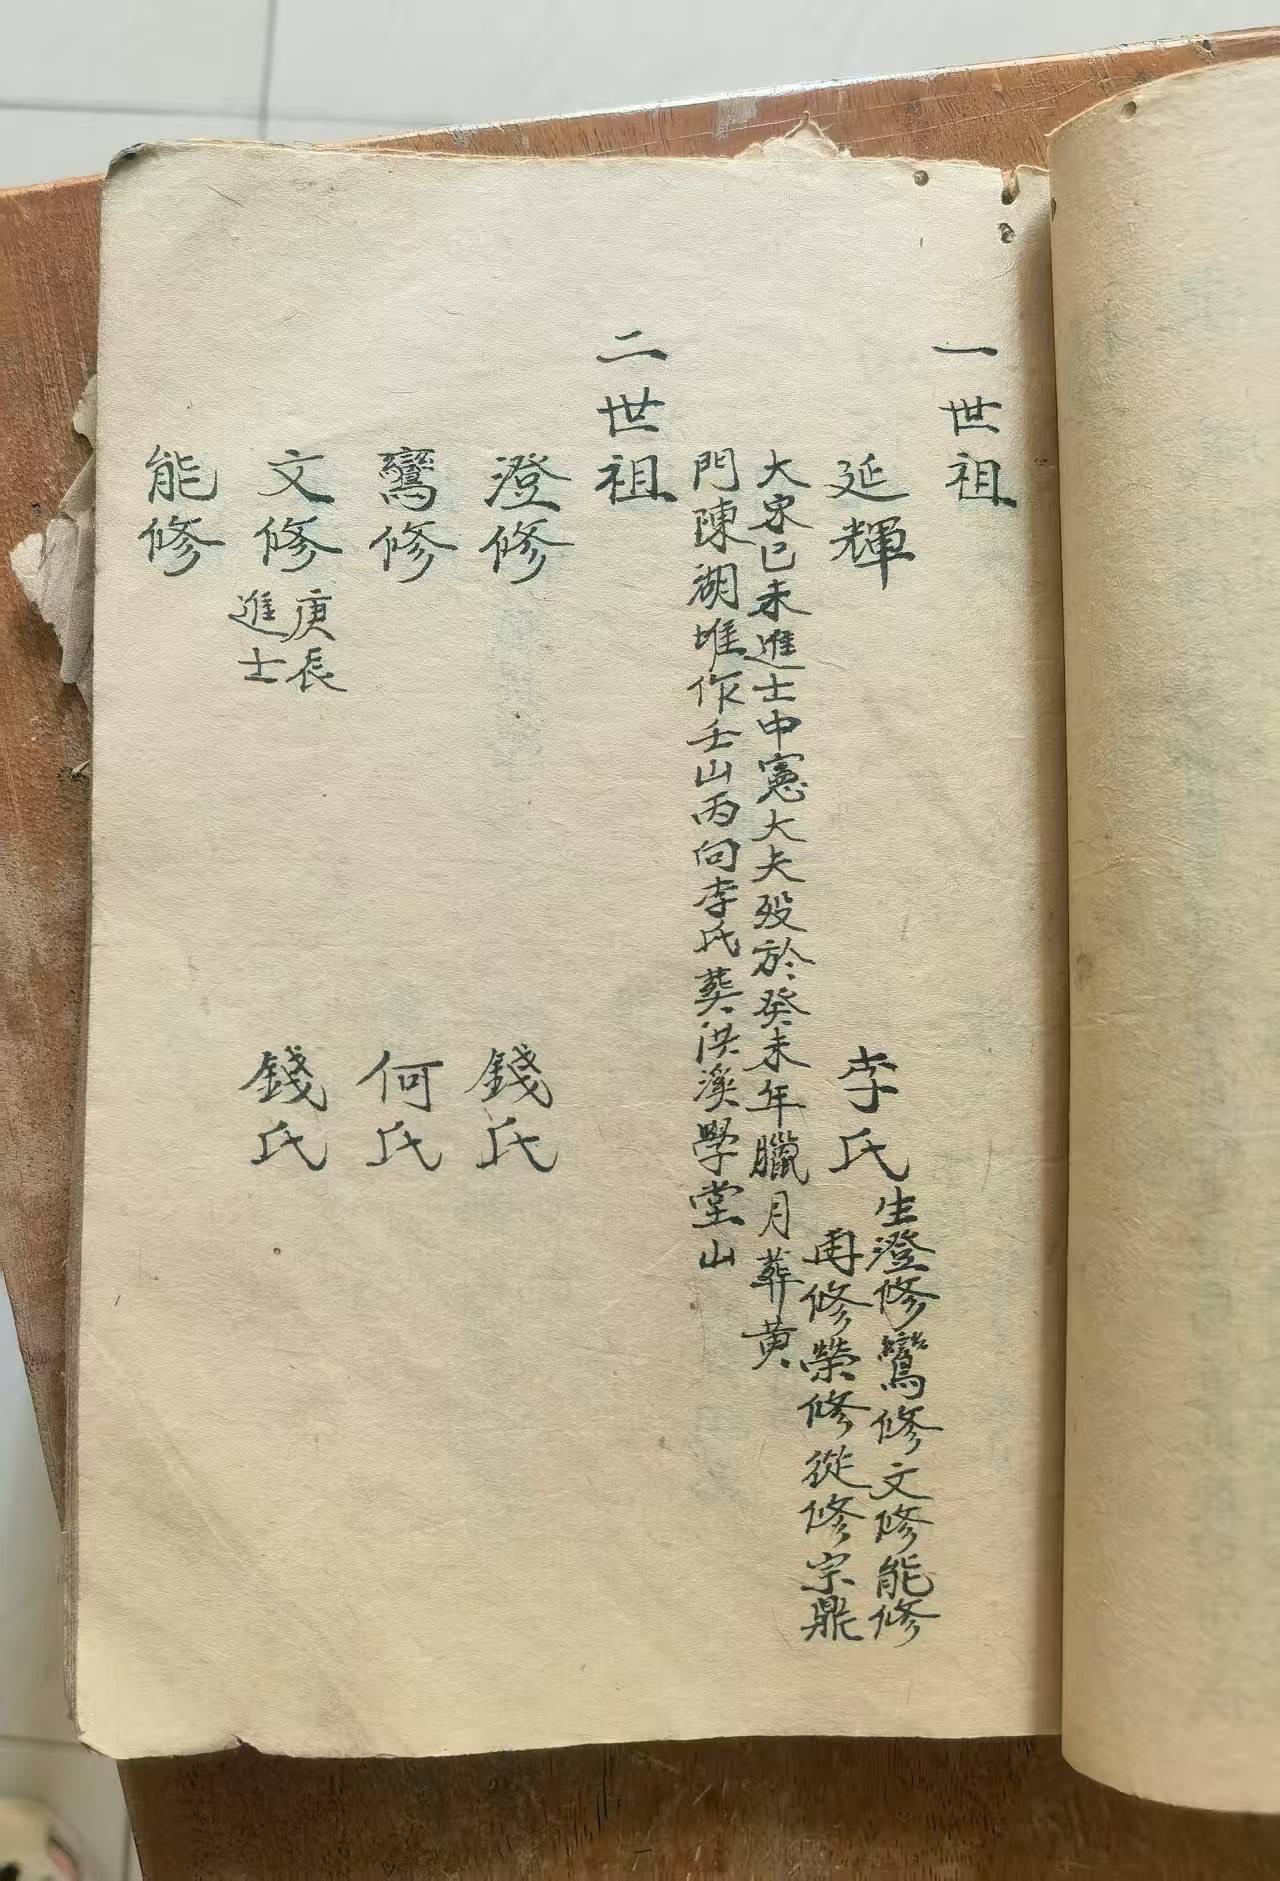 一世祖
延輝
李氏
生澄修鸞修文修能修
再修榮修從修宗鼎
大宋已未進士中憲大夫殁於癸未年臘月葬黄
門陳湖堆作壬山丙向李氏葬洪溪學堂山
二世祖
澄修
錢氏
鸞修
何氏
文修
庚辰
進士
錢氏
能修